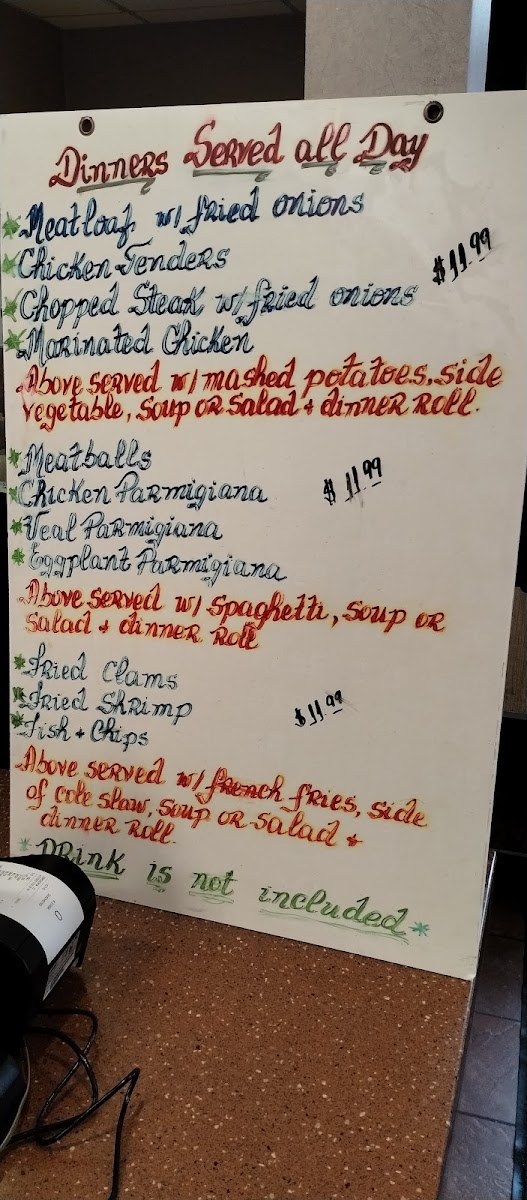 Dinners Served all Day
* Meatloaf w/ fried onions
* Chicken Tenders
$11.99
* Chopped Steak w/ fried onions
* Marinated Chicken
Above served w/ mashed potatoes, side
vegetable, soup or salad + dinner roll.
* Meatballs
* Chicken Parmigiana
$11.99
* Veal Parmigiana
* Eggplant Parmigiana
Above served w/ spaghetti, soup or
salad + dinner roll
* Fried Clams
* Fried Shrimp
$11.99
* Fish + Chips
Above served w/ french fries, side
of cole slaw, soup or salad +
dinner roll.
* DRink is not included *